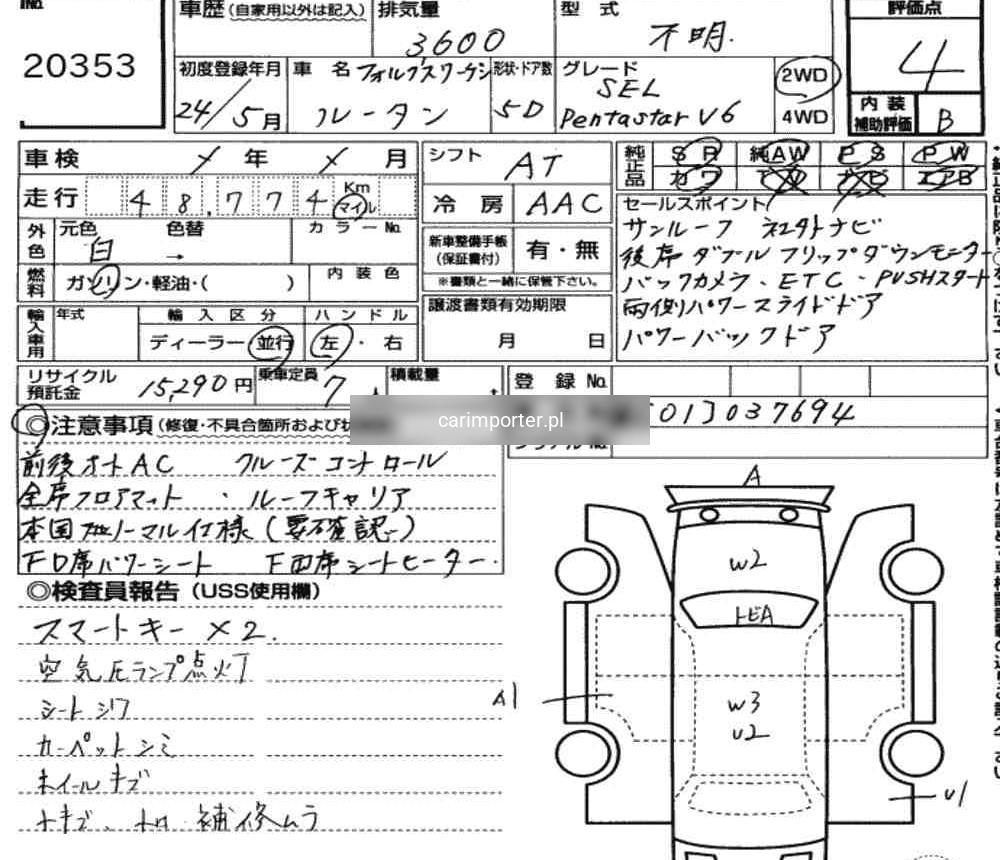 No.
20353
車歴 (自家用以外は記入)
排気量
3600
型 式
不明.
評価点
4
初度登録年月
24/5月
車 名
フォルクスワーゲン
ルータン
形状・ドア数
5D
グレード
SEL
Pentastar V6
2WD
4WD
内装
補助評価
B
車検
年
月
シフト
AT
純正品
S R
純AW
P S
P W
カワ
T V
ナビ
エアB
走行
48,774
Km
マイル
冷 房
AAC
セールスポイント
サンルーフ 社外ナビ
後席 ダブル フリップダウンモニター
バックカメラ・ETC・PUSHスタート
両側パワースライドドア
パワーバックドア
外色
元色
白
色替
→
カラーNo.
新車整備手帳
(保証書付)
有・無
※書類と一緒に保管下さい。
燃料
ガソリン・軽油・( )
内装色
譲渡書類有効期限
月 日
輸入車用
年式
輸入区分
ディーラー・並行
ハンドル
左・右
リサイクル
預託金
15,290円
乗車定員
7人
積載量
t
登 録 No.
[01]037694
carimporter.pl
◎注意事項 (修復・不具合箇所および
前後オートAC クルーズコントロール
全席フロアマット ・ ルーフキャリア
本国ノーマル仕様 (要確認)
FD席パワーシート F両席シートヒーター.
◎検査員報告 (USS使用欄)
スマートキー×2.
空気圧ランプ点灯
シートシワ
カーペットシミ
ホイールキズ
小キズ、小凹 補修ムラ
A
W2
トビA
W3
U2
A1
U1